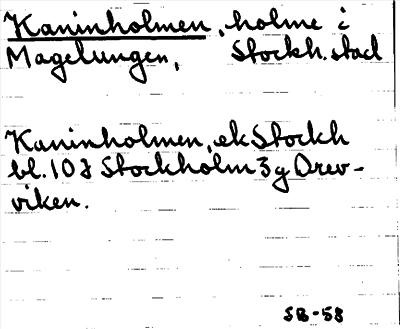 Kaninholmen, holme i
Magelungen, Stockh. stad
Kaninholmen, ek Stockh
bl. 10 J Stockholm 3 g Drev-
viken.
SB-58